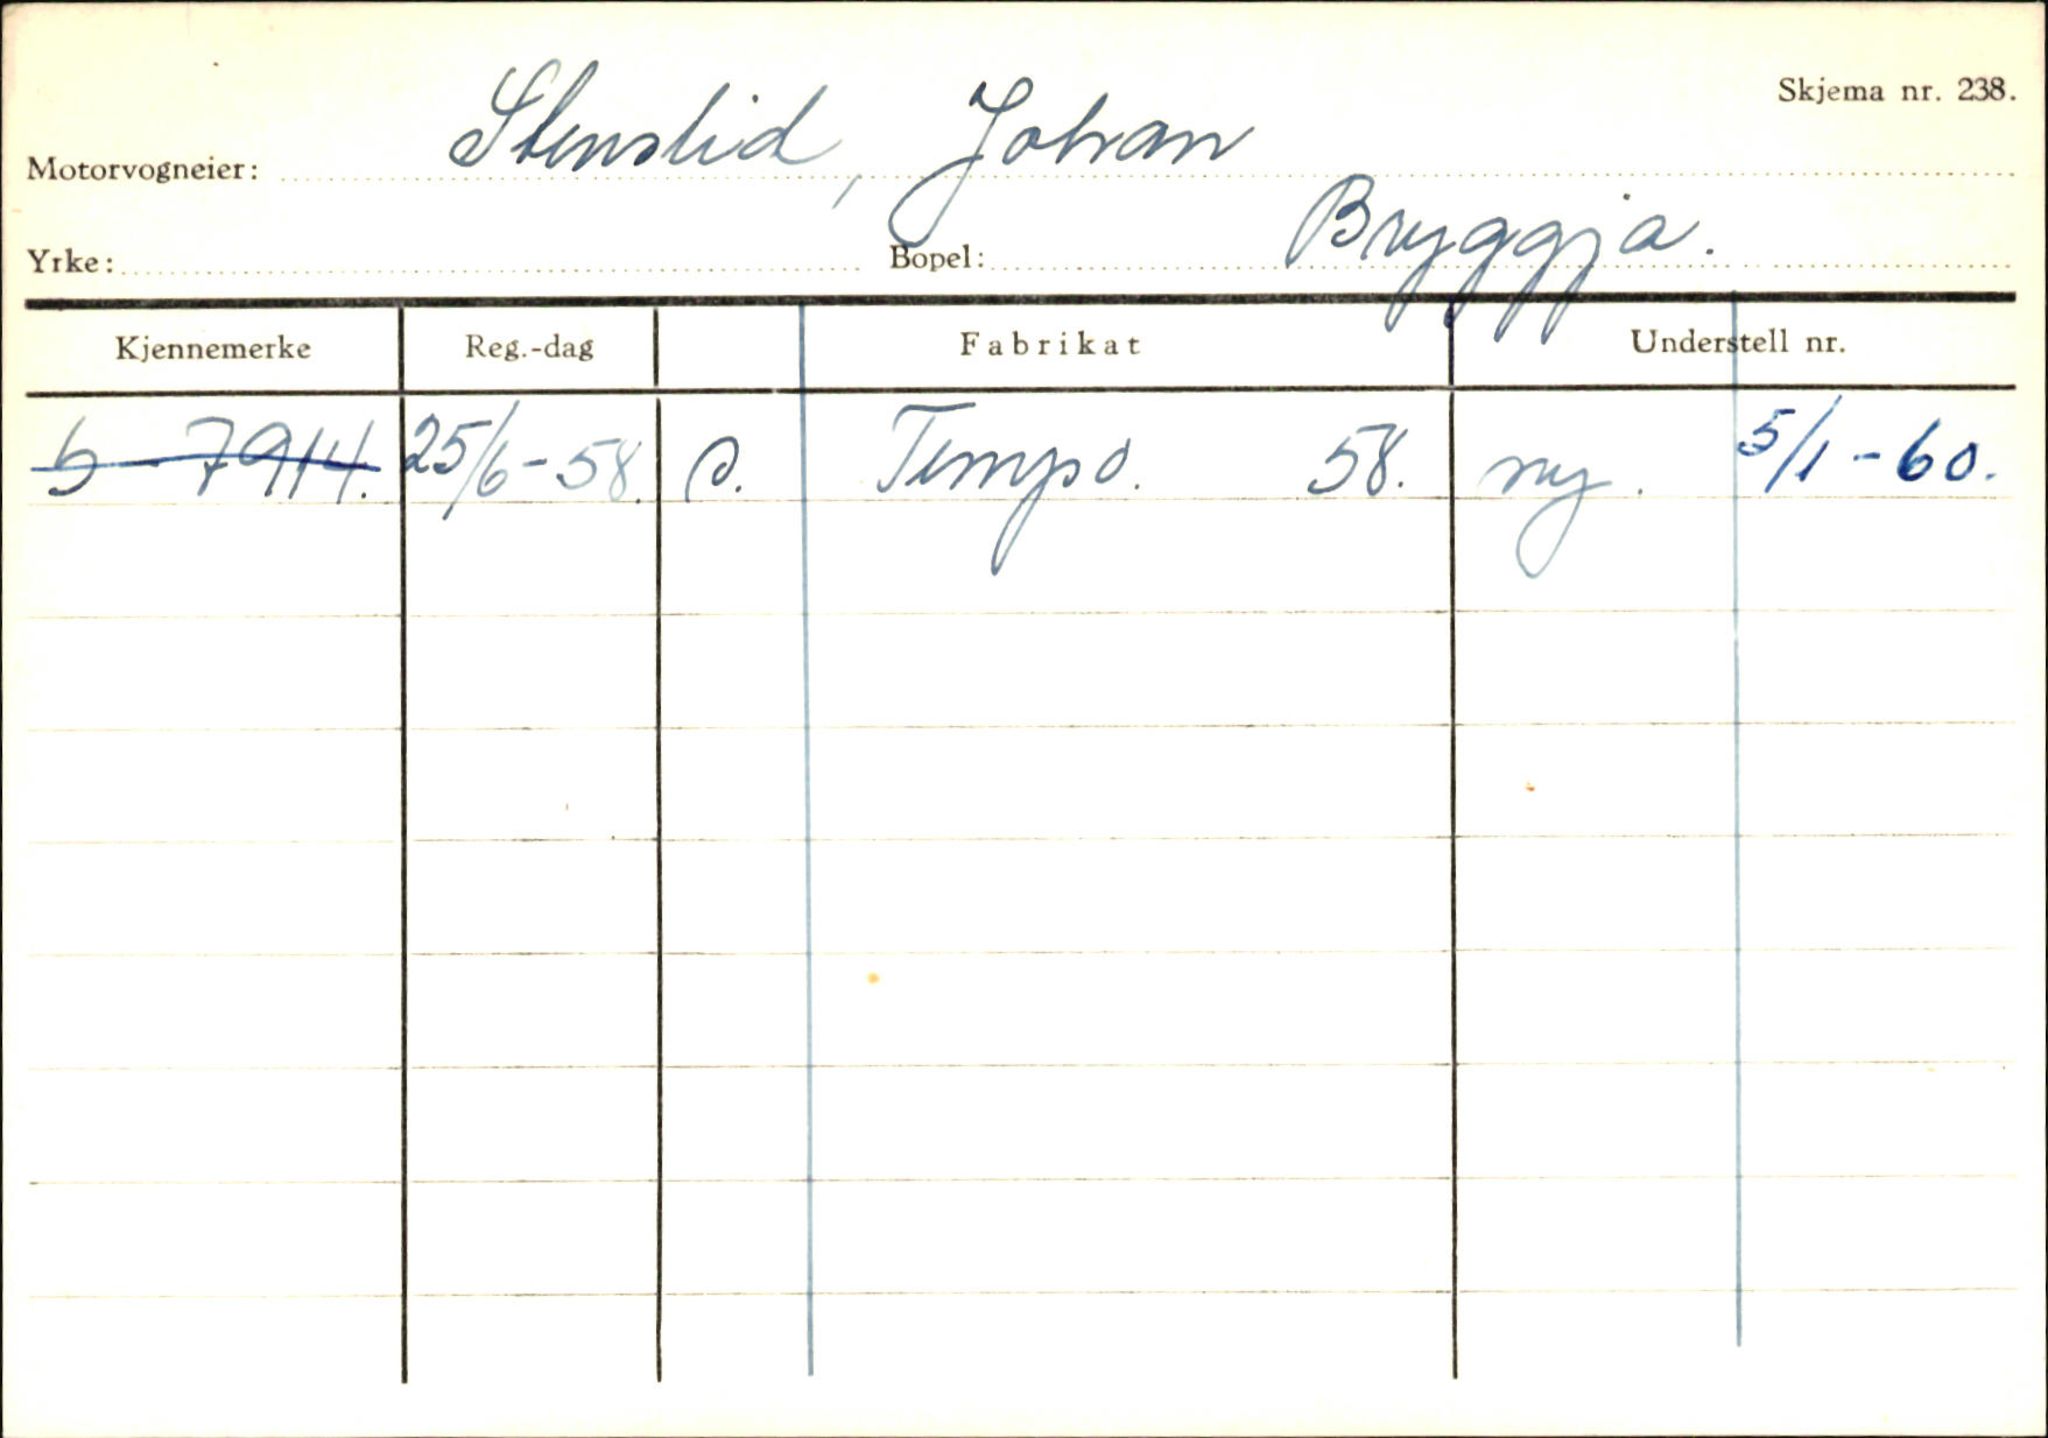 Skjema nr. 238.
Motorvogneier: Stenslid, Johan
Yrke: Bopel: Bryggja.
Kjennemerke Reg.-dag Fabrikat Understell nr.
S-7914. 25/6-58. P. Tempo. 58. ny. 5/1-60.